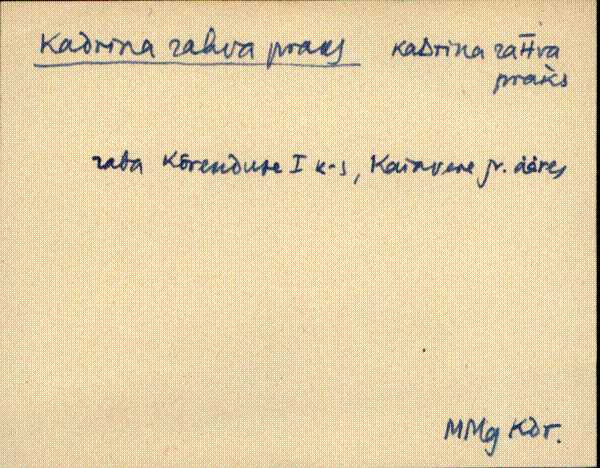 Kadrina rahva praaks kaDrina raHva
pràks
raba Kõrenduse I k-s, Kaiavere jr. ääres
MMg Kdr.